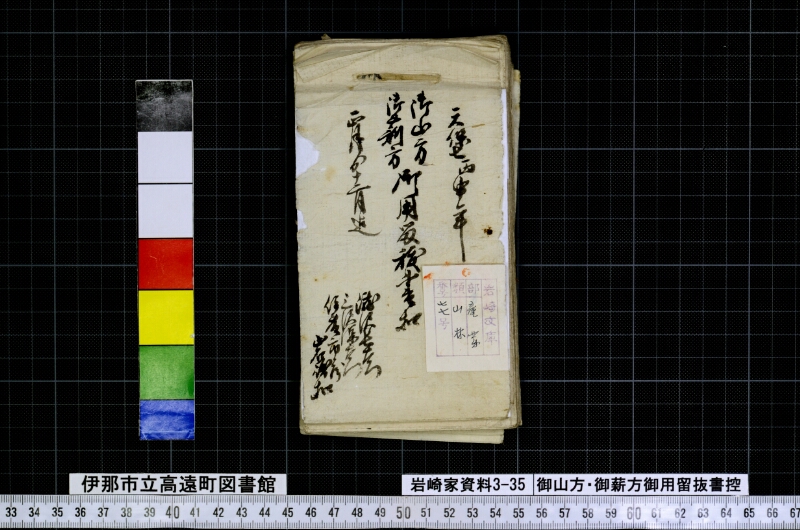 天保丙申年
御山方
御薪方
御用留抜書扣
正月ゟ十二月迄
岩崎文庫
部 産業
類 山林
第七七号
伊那市立高遠町図書館
岩崎家資料3-35
御山方・御薪方御用留抜書控
33 34 35 36 37 38 39 40 41 42 43 44 45 46 47 48 49 50 51 52 53 54 55 56 57 58 59 60 61 62 63 64 65 66 67